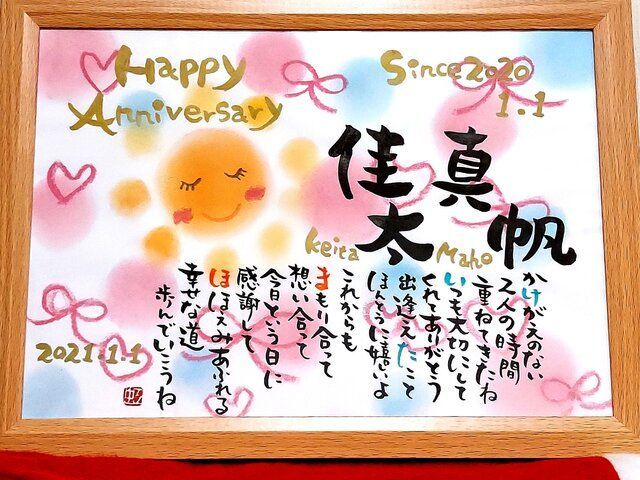 Happy
Anniversary
Since 2020
1.1
真帆
佳太
Maho
Keita
かけがえのない
2人の時間
重ねてきたね
いつも大切にして
くれてありがとう
出逢えたこと
ほんとうに嬉しいよ
これからも
まもり合って
想い合って
今日という日に
感謝して
ほほえみあふれる
幸せな道
歩んでいこうね
2021.1.1